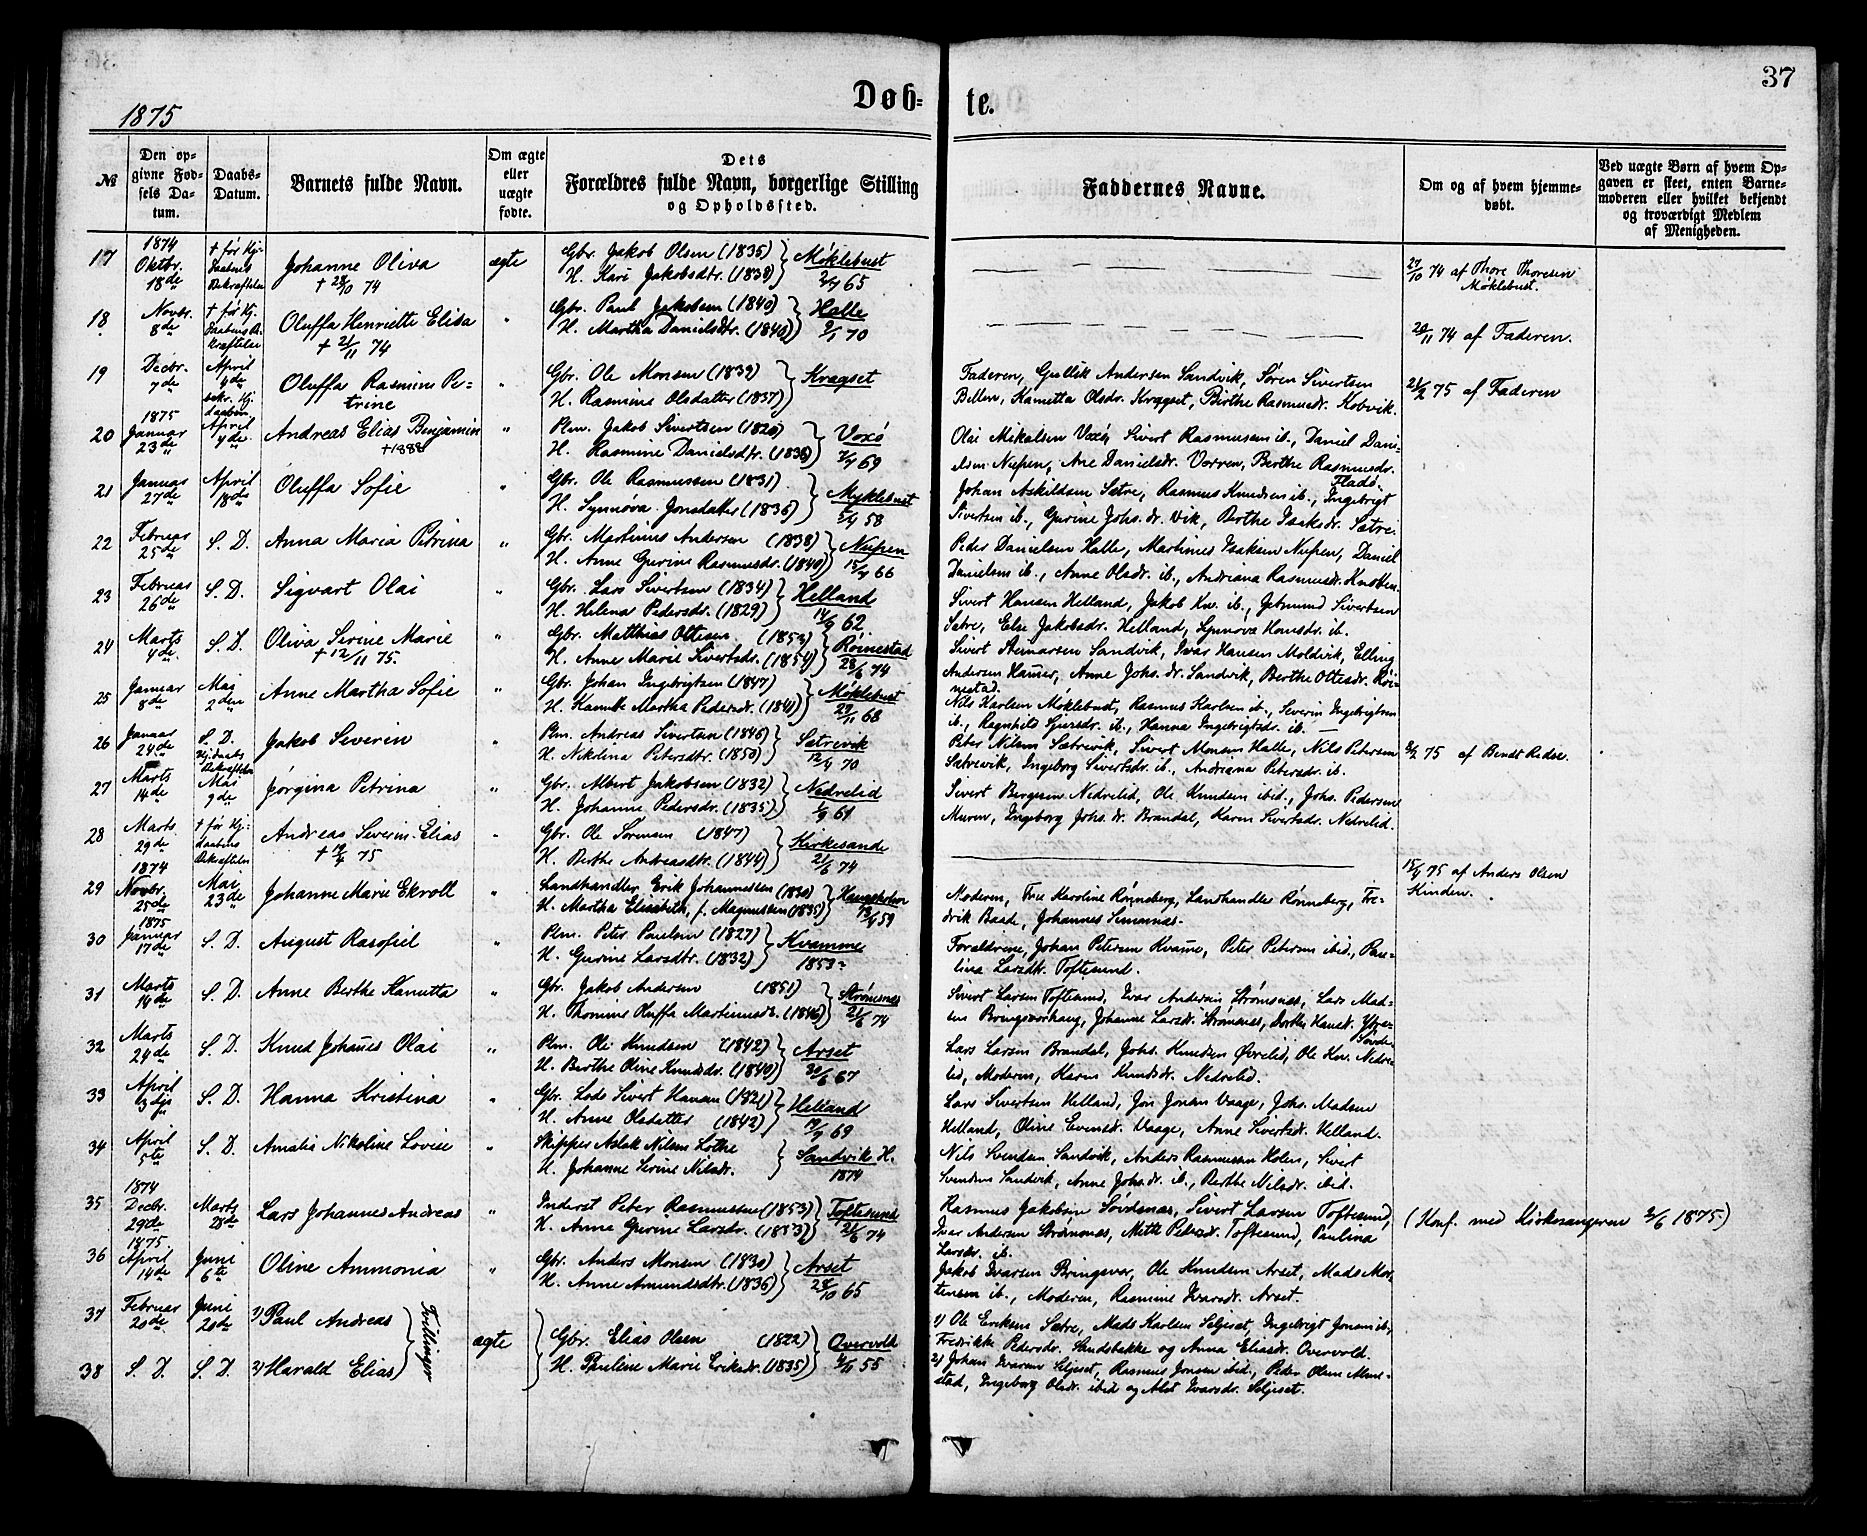 1875
Døb-
te.
37
№
Den op-
givne Fød-
sels Da-
tum.
Daabs-
Datum.
Barnets fulde Navn.
Om ægte
eller
uægte
fødte.
Dets
Forældres fulde Navn, borgerlige Stilling
og Opholdssted.
Faddernes Navne.
Om og af hvem hjemme-
døbt.
Ved uægte Børn af hvem Op-
gaven er skeet, enten Barne-
moderen eller hvilket bekjendt
og troværdigt Medlem
af Menigheden.
17
1874
Oktbr.
18de
† før Hj.
Daabens
Bekræftelse
Johanne Oliva
† 28/10 74
ægte
Gbr. Jakob Olsen (1835)
H. Kari Jakobsdtr. (1838)
Møklebust
65
27/10 74 af Thore Thoresen
Møklebust.
18
Novbr.
8de
† før Hj.
Daabens B.
kræftelse
Oluffa Henriette Elisa
† 21/11 74
"
Gbr. Paul Jakobsen (1840)
H. Martha Danielsdtr. (1840)
Halle
70
20/11 74 af Faderen.
19
Decbr.
7de
April
4de
bekr. Hj.
daaben
Oluffa Rasmine Pe-
trine
"
Gbr. Ole Monsen (1839)
H. Rasmine Olsdatter (1837)
Kragset
Faderen, Gullik Andersen Sandvik, Søren Sivertsen
Kamitta Olsdr. Kragset, Birthe Rasmusdr. Kobvik.
75 af Faderen
20
1875
Januar
23de
April
4de
Andreas Elias Benjamin
†1888
"
Plm. Jakob Sivertsen (1820)
H. Rasmine Danielsdtr. (1836)
Voxø
69
Olai Mikalsen Voxø, Sivert Rasmussen ib., Daniel Dani-
elsen Nupen, Ane Danielsdr. Vorren, Berthe Rasmusdr.
Fladø.
21
Januar
27de
April
18de
Oluffa Sofie
"
Gbr. Ole Rasmussen (1831)
H. Synnøva Jonsdatter (1836)
Myklebust
58
Johan Askildsen Sætre, Rasmus Knudsen ib., Ingebrigt
Sivertsen ib., Gurine Johs. dr. Vik, Berthe Isaksdr. Sætre.
22
Februar
25de
S. D.
Anna Maria Petrina
"
Gbr. Martinus Andersen (1838)
H. Anne Gurine Rasmusdr. (1840)
Nupen
66
Peder Danielsen Halle, Martines Isaksen Nupen, Daniel
Danielsen ib., Anne Olsdr. ib., Andriana Rasmusdr. Knotten.
23
Februar
26de
S. D.
Sigvart Olai
"
Gbr. Lars Sivertsen (1834)
H. Helena Pedersdr. (1829)
Helland
62
Sivert Hansen Helland, Jakob Kn. ib., Jetmund Sivertsen
Sætre, Else Jakobsdr. Helland, Synnøva Hansdr. ib.
24
Marts
4de
S. D.
Oliva Serine Marie
† 12/11 75.
"
Gbr. Matthias Ottesen (1853)
H. Anne Marie Sivertsdr. (1854)
Røinestad
28/6 74
Sivert Steinarsen Sandvik, Ivar Hansen Moldvik, Elling
Andersen Hauser, Anne Johs. dr. Sandvik, Berthe Ottesdr. Røi-
nestad.
25
Januar
8de
Mai
2den
Anne Martha Sofie
"
Gbr. Johan Ingebrigtsen (1847)
H. Martha Pedersdr. (1841)
Møklebust
29/11 68
Nils Karlsen Møklebust, Rasmus Karlsen ib., Severin Ingebrigtsen
ib., Ragnhild Sjursdr. ib., Hanna Ingebrigtsdr. ib.
26
Januar
24de
S. D.
Hj.daabs
Bekræftelse
Jakob Severin
"
Plm. Andreas Sivertsen (1846)
H. Nikolina Petersdtr. (1850)
Sætrevik
70
Peter Nilsen Sætrevik, Sivert Monsen Halle, Nils Petersen
Sætrevik, Ingeborg Sivertsdr. ib., Andriana Petersdr. ib.
75 af Bendt Redse.
27
Marts
14de
Mai
9de
Jørgina Petrina
"
Gbr. Albert Jakobsen (1832)
H. Johanne Pedersdr. (1835)
Nedrelid
61
Sivert Bergesen Nedrelid, Ole Knudsen ibid., Johs. Pedersen
Muren, Ingeborg Johs. dr. Brandal, Karen Sivertsdr. Nedrelid.
28
Marts
29de
† før Hj.-
daabens
Bekræftelse
Andreas Severin Elias
† 19/4 75
"
Gbr. Ole Sørensen (1847)
H. Berthe Andreasdtr. (1844)
Kirkesande
21/6 74
75 af Anders Olsen
Kinden.
29
1874
Novbr.
25de
Mai
23de
Johanne Marie Ekroll
"
Landhandler Erik Johannessen (1830)
H. Martha Elisabeth, f. Magnussen (1835)
59
Moderen, Fru Karoline Rønneberg, Landhandler Rønneberg, Fre-
drik Baad, Johannes Simonnæs.
30
1875
Januar
17de
S. D.
August Rasofiel
"
Plm. Peter Paulsen (1827)
H. Gurine Larsdtr. (1832)
Kvamme
1853
Forældrene, Johan Petersen Kvamme, Peter Petersen ibid., Pau-
lina Larsdtr. Toftesund.
31
Marts
14de
S. D.
Anne Berthe Kanutta
"
Gbr. Jakob Andersen (1851)
H. Thomine Oluffa Martinusdr. (1846)
Strømsnæs
21/6 74
Sivert Larsen Toftesund, Ivar Andersen Strømsnæs, Lars Mad-
sen Bringsvorhaug, Johanne Larsdr. Strømsnæs, Dorthe Hansdr. Ytre-
32
Marts
24de
S. D.
Knud Johanes Olai
"
Plm. Ole Knudsen (1842)
H. Berthe Oline Knudsdr. (1840)
Arset
30/6 67
Lars Larsen Brandal, Johs. Knudsen Øvrelid, Ole Kn. Nedre-
lid, Moderen, Karen Knudsdr. Nedrelid.
33
April
3die
S. D.
Hanna Kristina
"
Gbr. Lods Sivert Hansen (1821)
H. Anne Olsdatter (1842)
Helland
69
Lars Sivertsen Helland, Jon Jonsen Vaage, Johs. Madsen
Helland, Oline Evensdr. Vaage, Anne Sivertsdr. Helland.
34
April
5te
S. D.
Amalia Nikoline Lovise
"
Skipper Aslak Nilsen Lothe
H. Johanne Serine Nilsdr.
Sandvik H.
1874
Nils Svendsen Sandvik, Anders Rasmussen Holen, Sivert
Svendsen Sandvik, Anne Johs. dr. ib., Berthe Nilsdr. ibid.
35
1874
Decbr.
29de
Marts
28de
Lars Johannes Andreas
"
Inderst Peter Rasmussen (1853)
H. Anne Gurine Larsdr. (1853)
Toftesund
21/6 74
Rasmus Jakobsen Søvdsnæs, Sivert Larsen Toftesund,
Ivar Andersen Strømsnæs, Mette Pedersdr. Toftesund, Paulina
Larsdr. ib.
(Konf. med Kirkesangeren 2/6 1875)
36
1875
April
14de
Juni
6te
Oline Ammonia
"
Gbr. Anders Monsen (1830)
H. Anne Amundsdtr. (1836)
Arset
28/10 65
Jakob Ivarsen Bringsvor, Ole Knudsen Arset, Mads Mor-
tensen ib., Moderen, Rasmine Ivarsdr. Arset.
37
Februar
20de
Juni
20de
1) Paul Andreas
Tvillinger
ægte
Gbr. Elias Olsen (1822)
H. Pauline Marie Eriksdr. (1835)
Overvold
55
1) Ole Eriksen Sætre, Mads Karlsen Seljeset, Ingebrigt Jonsen ib.,
Fredrikke Pedersdr. Sandsbakke og Anna Eliasdr. Overvold.
38
S. D.
S. D.
2) Harald Elias
2) Johan Ivarsen Seljeset, Rasmus Jonsen ibid., Peder Olsen
stad, Ingeborg Olsdr. ibid og Alet Ivarsdr. Seljeset.